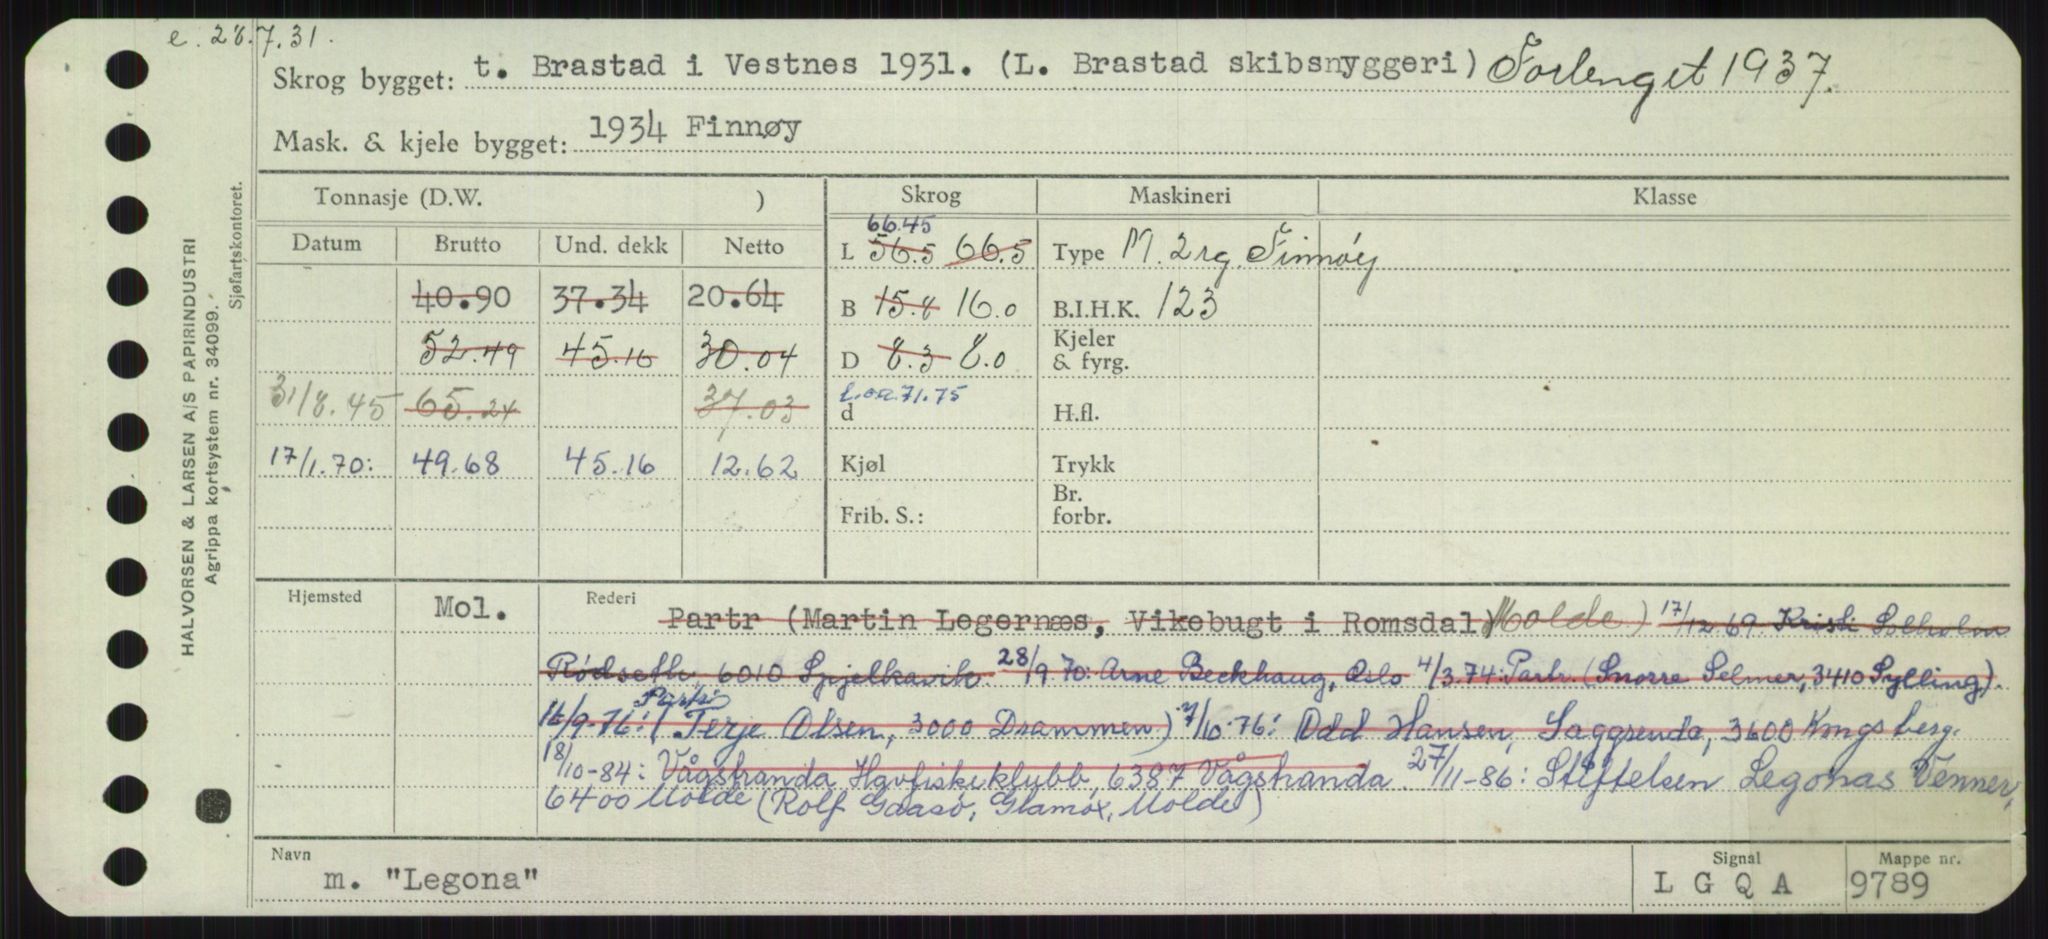 e. 28.7.31.
Skrog bygget: t. Brastad i Vestnes 1931. (L. Brastad skibsnyggeri) Forlenget 1937.
Mask. & kjele bygget: 1934 Finnøy
HALVORSEN & LARSEN A/S PAPIRINDUSTRI
Agrippa kortsystem nr. 34099.
Sjøfartskontoret.
Tonnasje (D.W. ) Skrog Maskineri Klasse
Datum Brutto Und. dekk Netto
66.45
L 56.5 66.5 Type M. 2 rg. Finnøy
40.90 37.34 20.64 B 15.8 16.0 B.I.H.K. 123
52.49 45.16 30.04 D 8.3 8.0 Kjeler & fyrg.
31/8.45 65.24 37.03 L.o.a. 71.75
d H.fl.
17/1.70: 49.68 45.16 12.62 Kjøl Trykk
Frib. S.: Br. forbr.
Hjemsted Mol. Rederi Partr (Martin Legernæs, Vikebugt i Romsdal) Molde) 17/12 69. Kristi Solholm
Rødseth 6010 Spjelkavik. 28/9.70: Arne Beckhaug, Oslo 4/3.74: Partr. (Snorre Selmer, 3410 Sylling).
Partr.
/9-76: (Terje Olsen, 3000 Drammen) 7/10.76: Odd Hansen, Saggrenda, 3600 Kongsberg.
18/10-84: Vågstranda Havfiskeklubb, 6387 Vågstranda 27/11-86: Stiftelsen Legonas Venner,
6400 Molde (Rolf Gaasø, Glamox, Molde)
Navn m. "Legona" Signal L G Q A Mappe nr. 9789